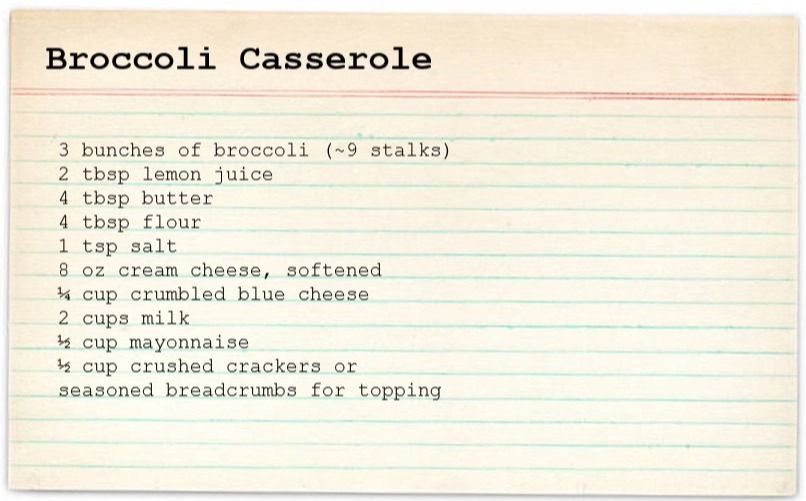 Broccoli Casserole
3 bunches of broccoli (~9 stalks)
2 tbsp lemon juice
4 tbsp butter
4 tbsp flour
1 tsp salt
8 oz cream cheese, softened
¼ cup crumbled blue cheese
2 cups milk
½ cup mayonnaise
½ cup crushed crackers or
seasoned breadcrumbs for topping